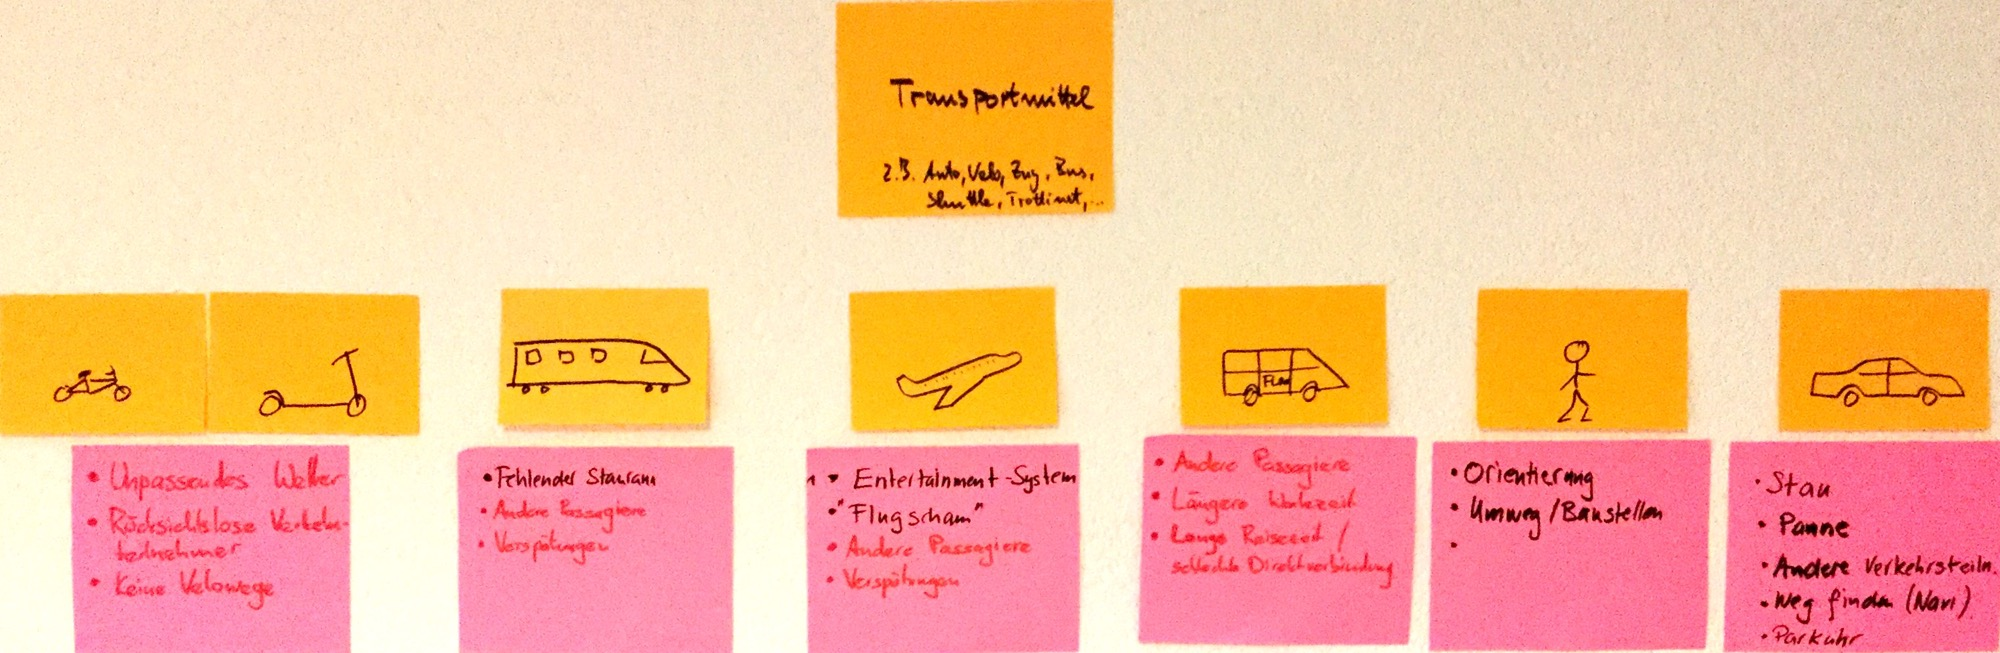 Transportmittel
z.B. Auto, Velo, Zug, Bus,
Shuttle, Trottinet, ...
• Unpassendes Wetter
• Rücksichtslose Verkehr-
teilnehmer
• Keine Velowege
• Fehlender Stauraum
• Andere Passagiere
• Verspätungen
• Entertainment-System
• "Flugscham"
• Andere Passagiere
• Verspätungen
• Andere Passagiere
• Längere Wartezeit
• Lange Reisezeit /
schlechte Direktverbindung
• Orientierung
• Umweg / Baustellen
•
• Stau
• Panne
• Andere Verkehrsteiln.
• Weg finden (Navi)
• Parkuhr